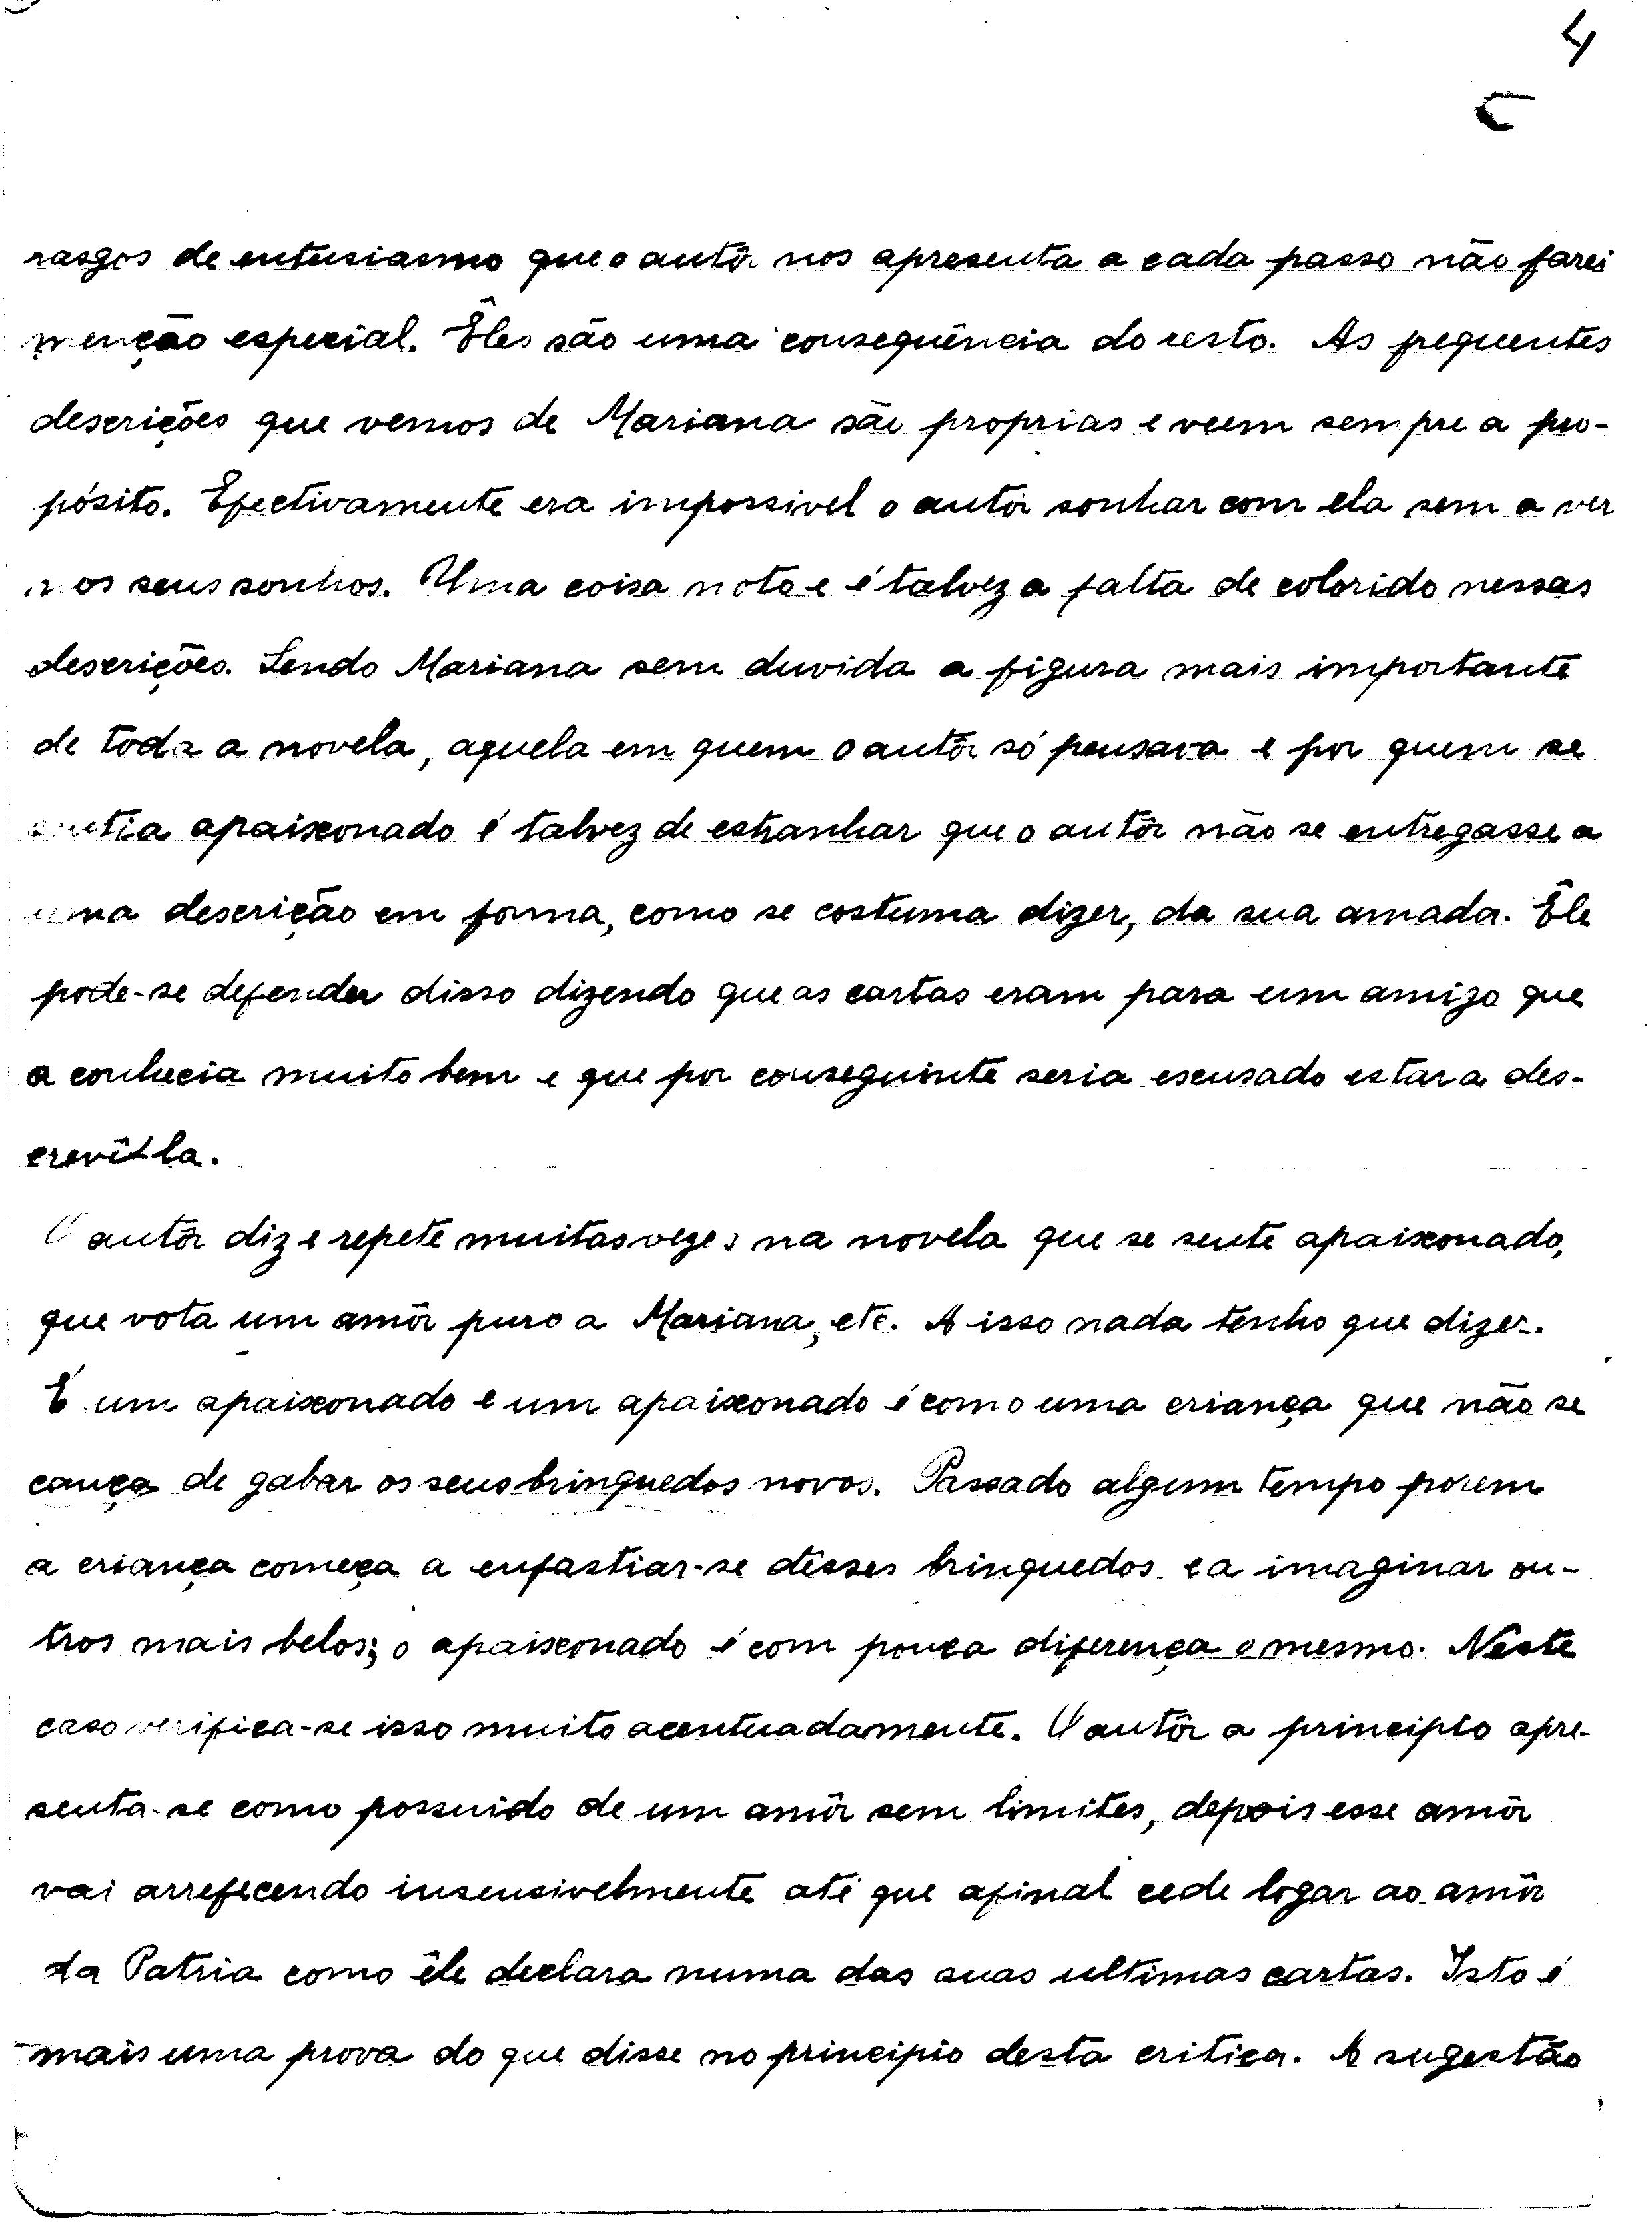 4
rasgos de entusiasmo que o autôr nos apresenta a cada passo não farei
menção especial. Êles são uma consequência do resto. As frequentes
descrições que vemos de Mariana são proprias e veem sempre a pro-
pósito. Efectivamente era impossivel o autôr sonhar com ela sem a ver
nos seus sonhos. Uma coisa noto e é talvez a falta de colorido nessas
descrições. Sendo Mariana sem duvida a figura mais importante
de toda a novela, aquela em quem o autôr só pensava e por quem se
sentia apaixonado é talvez de estranhar que o autôr não se entregasse a
uma descrição em forma, como se costuma dizer, da sua amada. Êle
pode-se defender disso dizendo que as cartas eram para um amigo que
a conhecia muito bem e que por conseguinte seria escusado estar a des-
crevê-la.
O autôr diz e repete muitas vezes na novela que se sente apaixonado,
que vota um amôr puro a Mariana, etc. A isso nada tenho que dizer.
É um apaixonado e um apaixonado é como uma criança que não se
cança de gabar os seus brinquedos novos. Passado algum tempo porem
a criança começa a enfastiar-se dêsses brinquedos e a imaginar ou-
tros mais belos; o apaixonado é com pouca diferença o mesmo. Neste
caso verifica-se isso muito acentuadamente. O autôr a principio apre-
senta-se como possuido de um amôr sem limites, depois esse amôr
vai arrefecendo insensivelmente até que afinal cede logar ao amôr
da Patria como êle declara numa das suas ultimas cartas. Isto é
mais uma prova do que disse no principio desta critica. A sugestão